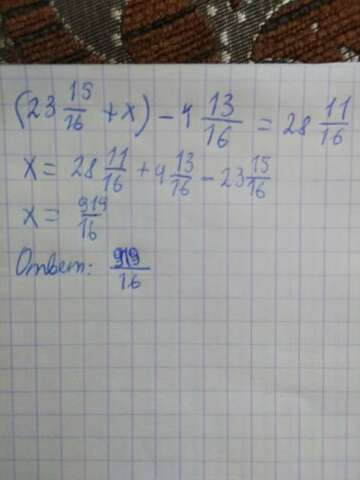 (23 15/16 + x) - 4 13/16 = 28 11/16
x = 28 11/16 + 4 13/16 - 23 15/16
x = 919/16
Ответ: 919/16